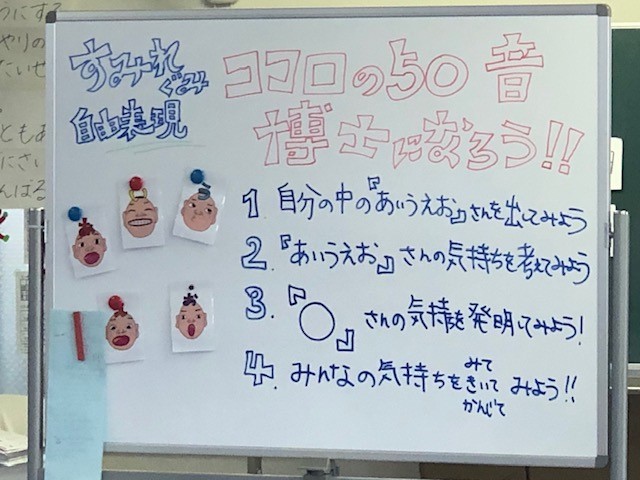 すみれ
ぐみ
自由表現
ココロの50音
博士になろう!!
1 自分の中の『あいうえお』さんを出してみよう
2. 『あいうえお』さんの気持ちを考えてみよう
3. 『○』さんの気持を発明してみよう!
4. みんなの気持ちを みて きいて かんじて みよう!!
うにする
やりの
たいせ
ともあ
にさい
んばる